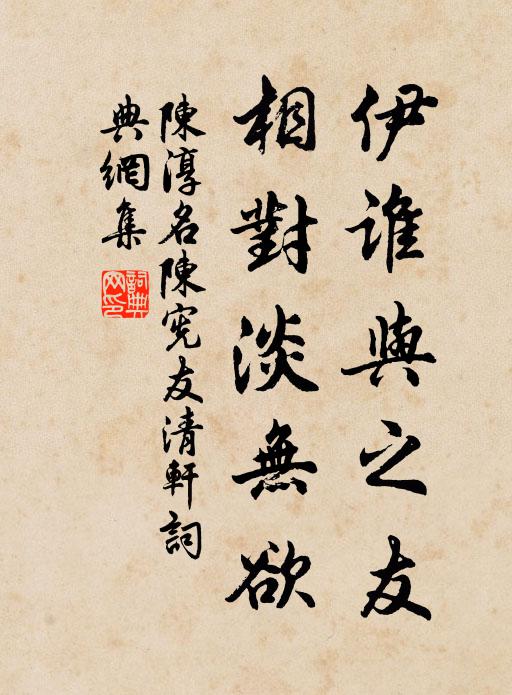 伊誰與之友
相對淡無欲
陳淳名陳憲友清軒詞
典網集
詞典网印